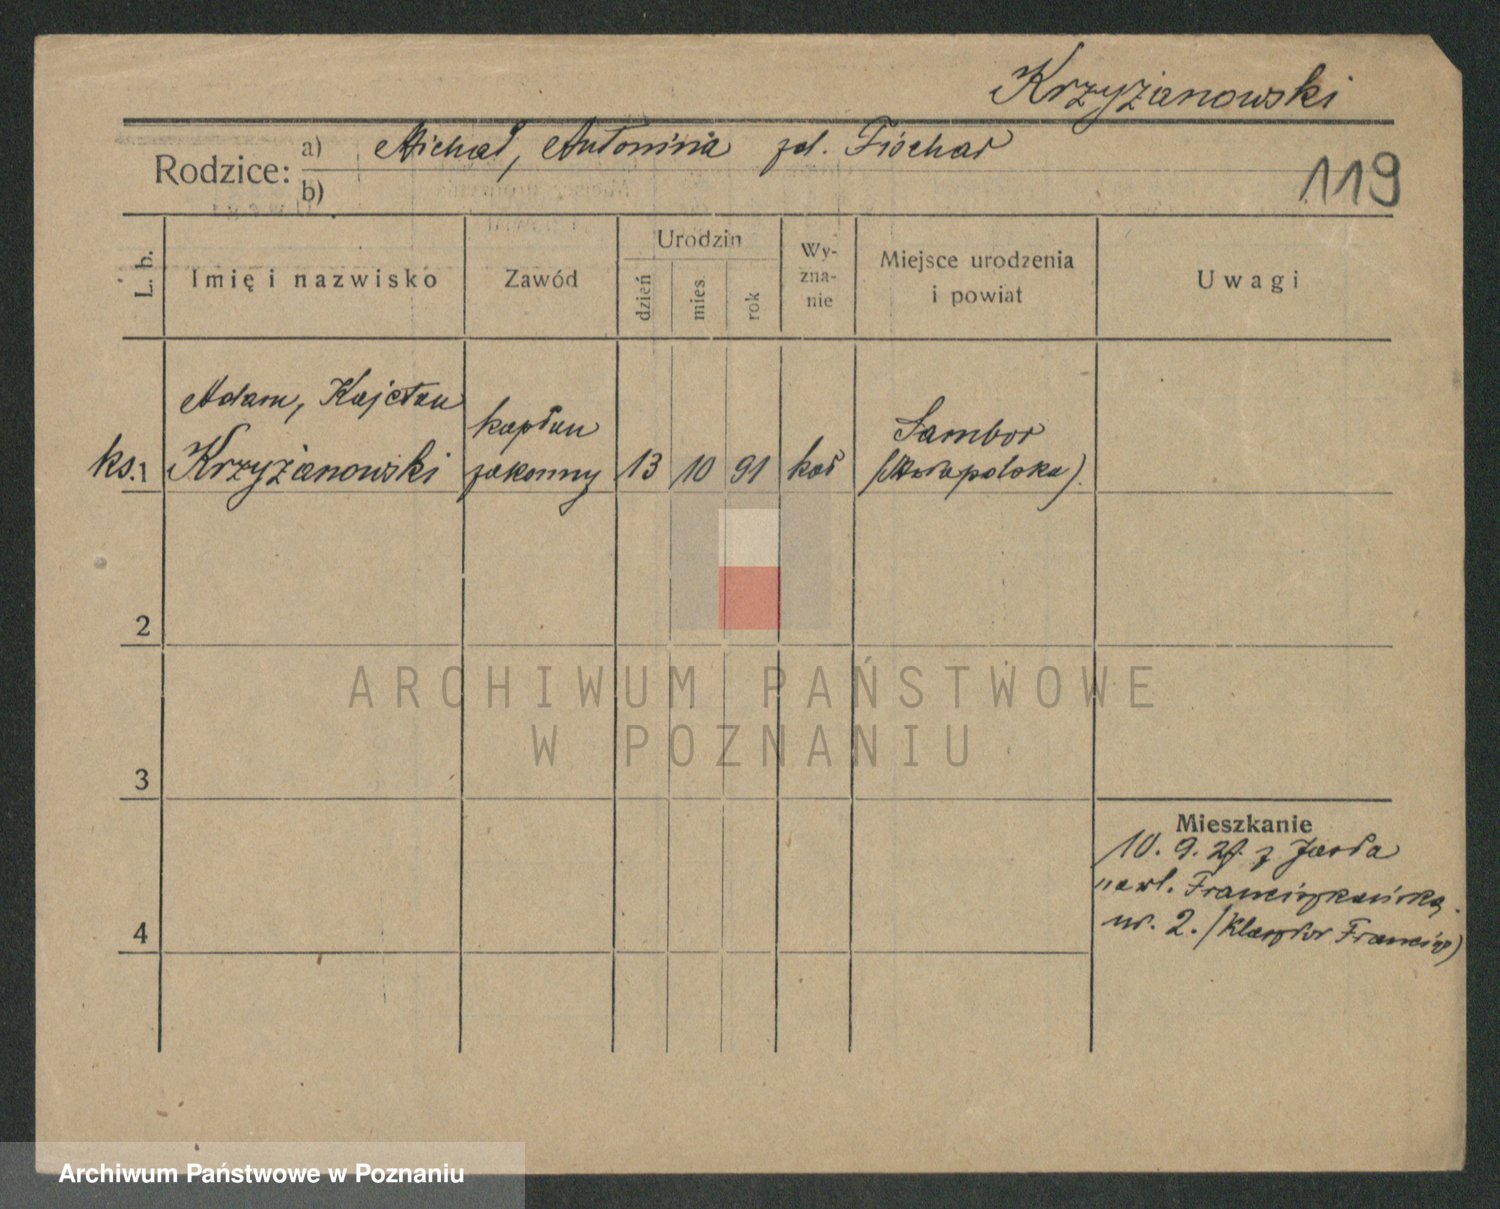 Krzyżanowski
Rodzice: a) Michał, Antonina zd. Fiochar
b)
119
L. b.
Imię i nazwisko
Zawód
Urodzin
dzień
mies
rok
Wy-
zna-
nie
Miejsce urodzenia
i powiat
Uwagi
Adam, Kajetan
Krzyżanowski
ks. 1
kapłan
zakonny
13
10
91
kat
Sambor
(Małopolska).
2
3
4
Mieszkanie
10. 9. 27. z Jasła
na ul. Franciszkańska
nr. 2. (Klasztor Francisz)
ARCHIWUM PAŃSTWOWE
W POZNANIU
Archiwum Państwowe w Poznaniu